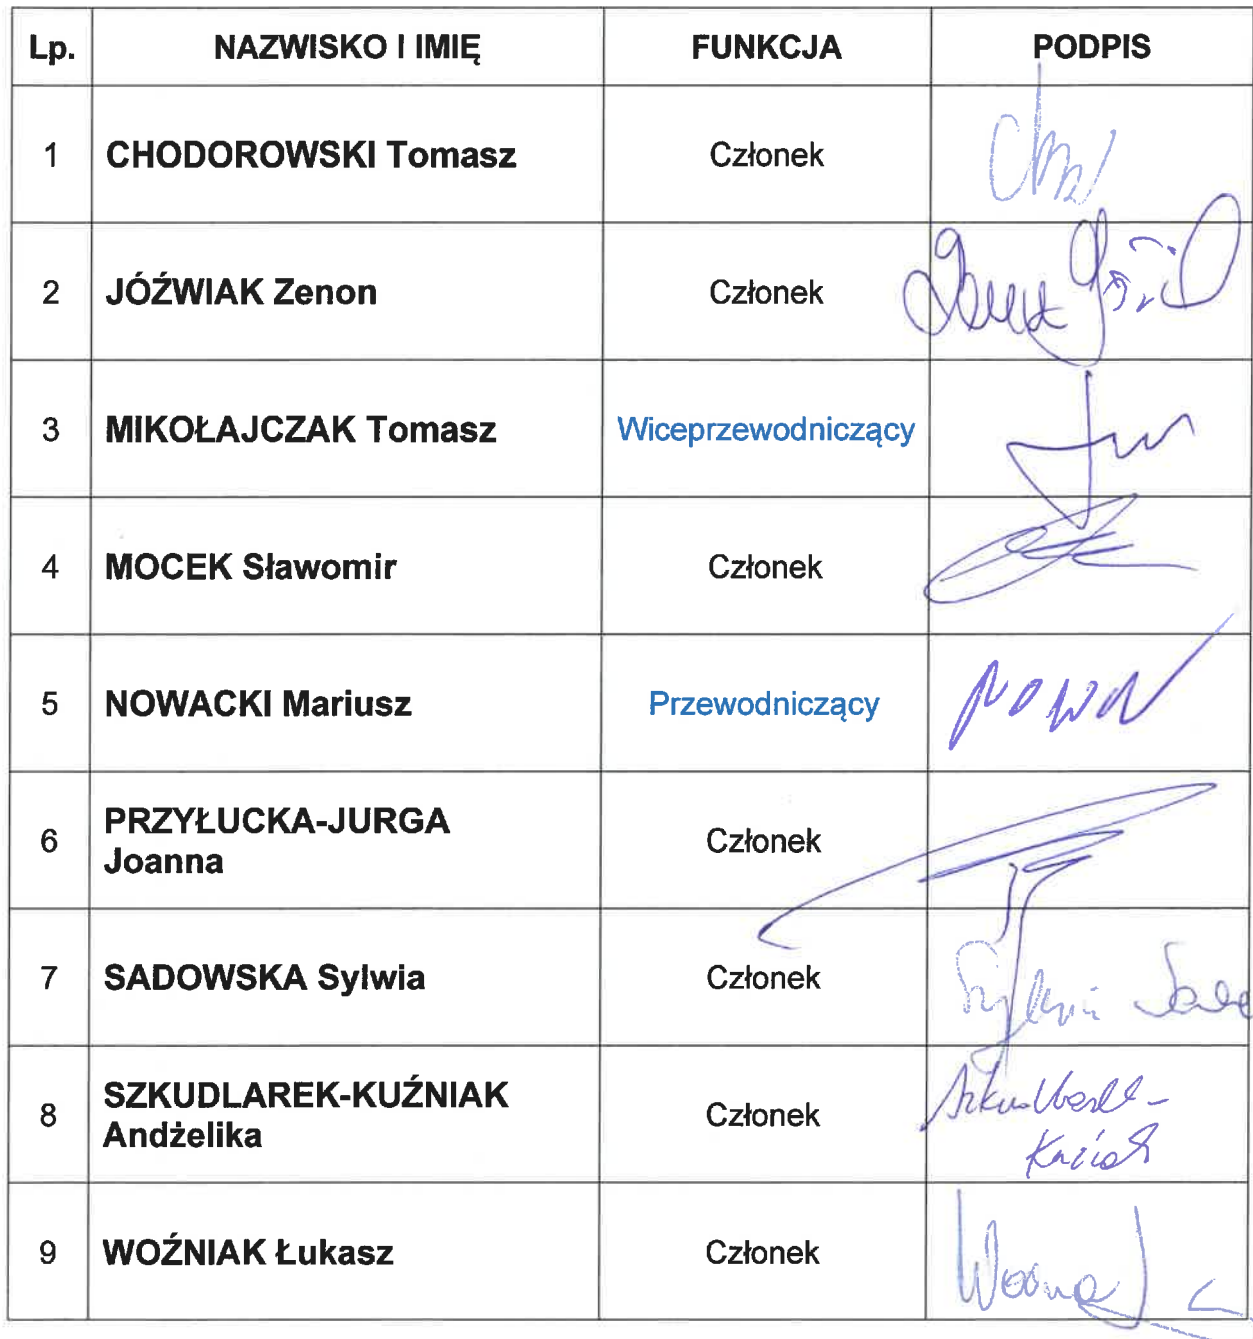 Lp. NAZWISKO I IMIĘ FUNKCJA PODPIS
1 CHODOROWSKI Tomasz Członek
2 JÓŹWIAK Zenon Członek
3 MIKOŁAJCZAK Tomasz Wiceprzewodniczący
4 MOCEK Sławomir Członek
5 NOWACKI Mariusz Przewodniczący
6 PRZYŁUCKA-JURGA
Joanna Członek
7 SADOWSKA Sylwia Członek
8 SZKUDLAREK-KUŹNIAK
Andżelika Członek
9 WOŹNIAK Łukasz Członek